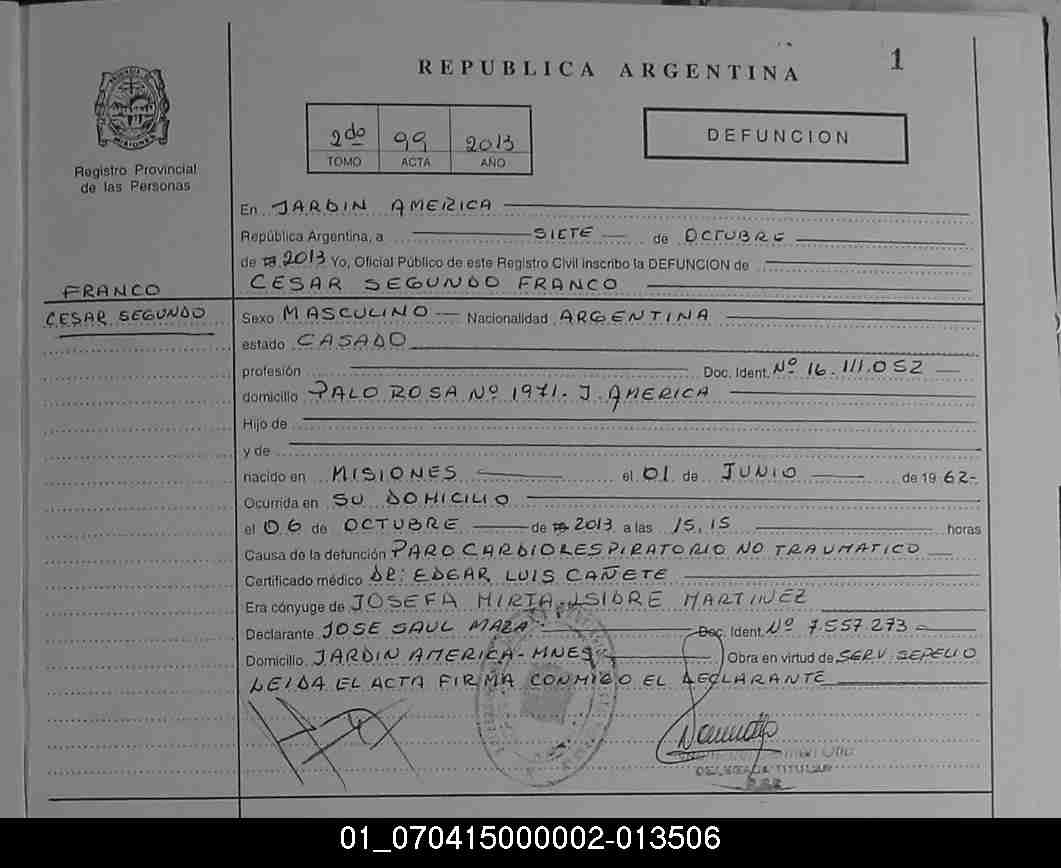 REPUBLICA ARGENTINA
1
MISIONES
Registro Provincial
de las Personas
2do 99 2013
TOMO ACTA AÑO
DEFUNCION
En JARDIN AMERICA
República Argentina, a SIETE de OCTUBRE
de 2013 Yo, Oficial Público de este Registro Civil inscribo la DEFUNCION de
CESAR SEGUNDO FRANCO
FRANCO
CESAR SEGUNDO
Sexo MASCULINO Nacionalidad ARGENTINA
estado CASADO
profesión Doc. Ident. Nº 16.111.052
domicilio PALO ROSA Nº 1971. J. AMERICA
Hijo de
y de
nacido en MISIONES el 01 de JUNIO de 1962-
Ocurrida en SU DOMICILIO
el 06 de OCTUBRE de 2013 a las 15.15 horas
Causa de la defunción PARO CARDIORESPIRATORIO NO TRAUMATICO
Certificado médico DR: EDGAR LUIS CAÑETE
Era cónyuge de JOSEFA MIRTA ISIDRE MARTINEZ
Declarante JOSE SAUL MAZA Doc. Ident. Nº 7.557.273
Domicilio JARDIN AMERICA-MNES Obra en virtud de SERV. SEPELIO
LEIDA EL ACTA FIRMA CONMIGO EL DECLARANTE
DELEGADA TITULAR
01_070415000002-013506